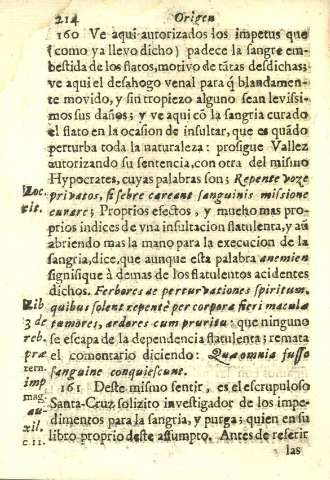 214 Origen
160 Ve aqui autorizados los impetus que
(como ya llevo dicho) padece la sangre em-
bestida de los flatos, motivo de tãtas desdichas;
ve aqui el desahogo venal para q̃ blandamen-
te movido, y sin tropiezo alguno sean levissi-
mos sus daños; y ve aqui cõ la sangria curado
el flato en la ocasion de insultar, que es quãdo
perturba toda la naturaleza: prosigue Vallez
autorizando su sentencia, con otra del mismo
Hypocrates, cuyas palabras son; Repente voze
Loc. privatos, si febre careant sanguinis missione
cit. curare; Proprios efectos, y mucho mas pro-
prios indices de vna insultacion flatulenta, y aũ
abriendo mas la mano para la execucion de la
sangria, dice, que aunque esta palabra anemien
signifique à demas de los flatulentos accidentes
dichos. Ferbores ac perturvationes spiritum,
Lib quibus solent repentè per corpora fieri macula
3 de tumores, ardores cum pruritu: que ninguno
reb. se escapa de la dependencia flatulenta; remata
præ el comentario diciendo: Quæ omnia fusso
tern. sanguine conquiescunt.
imp 161 Deste mismo sentir, es el escrupuloso
mag. Santa-Cruz solizito investigador de los impe-
au- dimentos para la sangria, y purga; quien en su
xil. libro proprio deste assumpto. Antes de referir
c 11. las